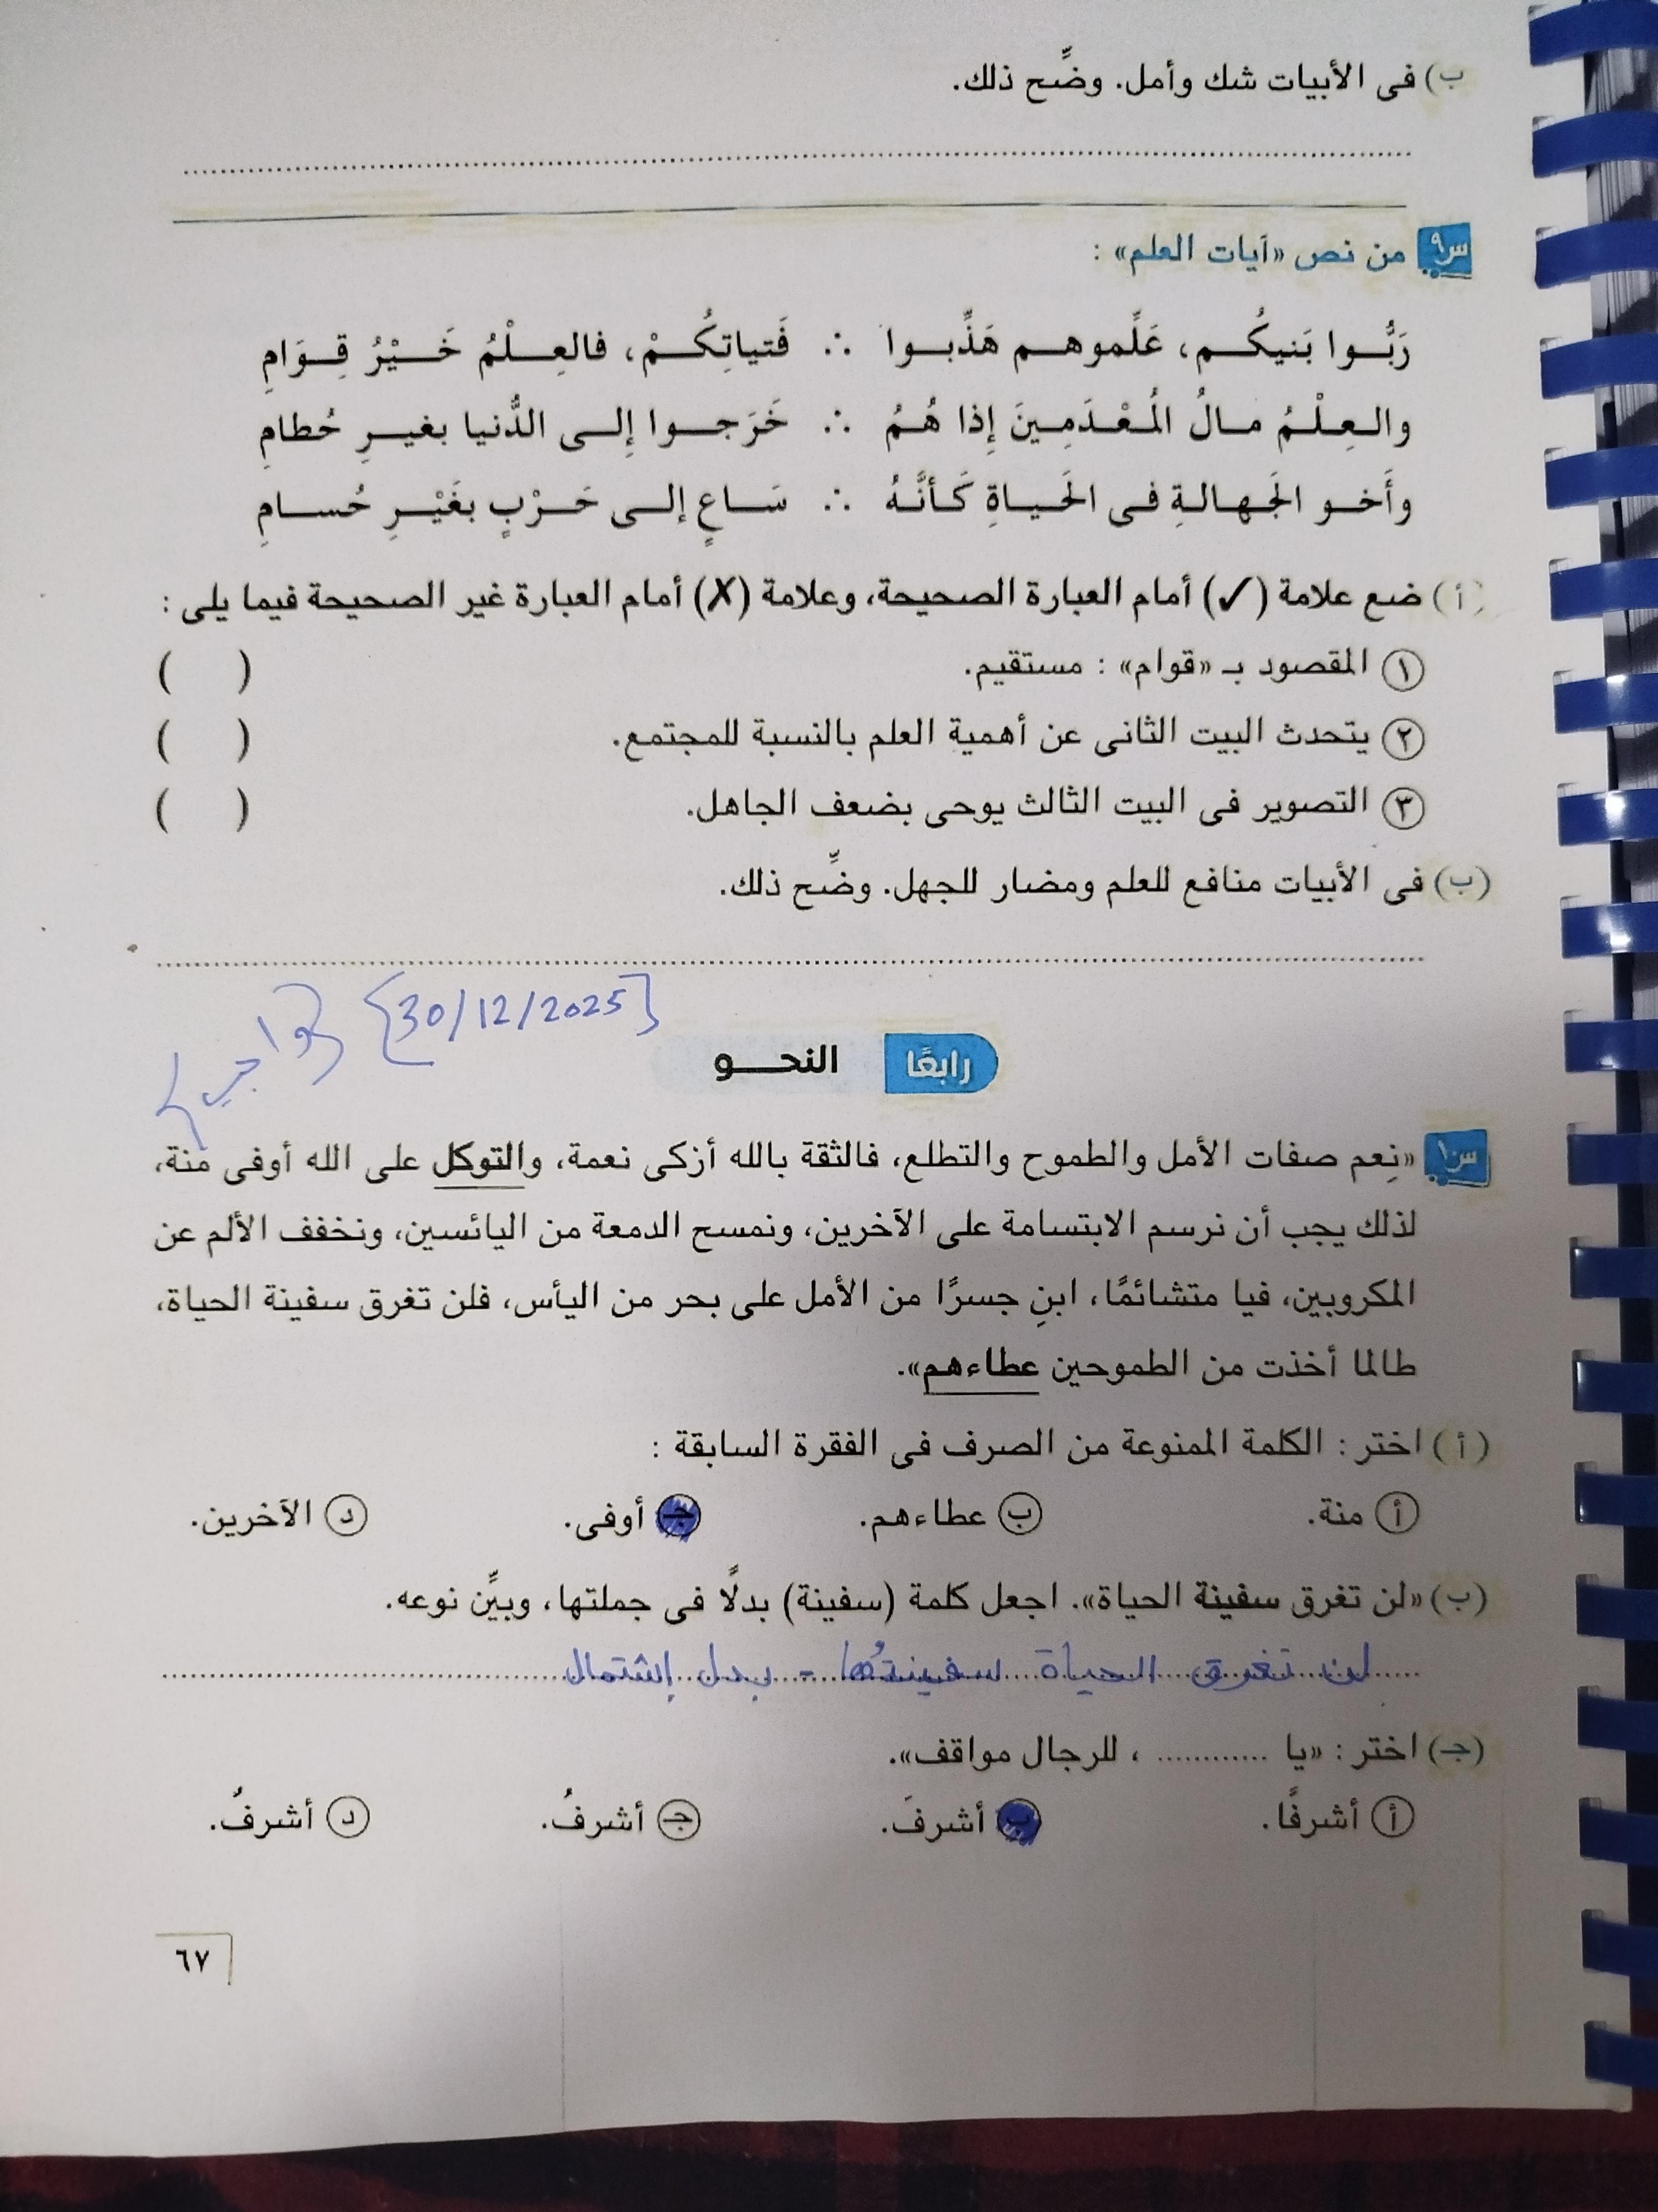 ب) فى الأبيات شك وأمل. وضِّح ذلك.
س٩ من نص «آيات العلم» :
رَبُّوا بَنيكُم، عَلِّموهم هَذِّبوا ∴ فَتياتِكُمْ، فالعِلْمُ خَيْرُ قِوَامِ
والعِلْمُ مالُ المُعْدَمِينَ إِذا هُمُ ∴ خَرَجوا إِلى الدُّنيا بغيرِ حُطامِ
وأَخو الجَهالةِ فى الحَياةِ كَأنَّهُ ∴ سَاعٍ إلى حَرْبٍ بغَيْرِ حُسامِ
(أ) ضع علامة (✓) أمام العبارة الصحيحة، وعلامة (✗) أمام العبارة غير الصحيحة فيما يلى :
١ المقصود بـ «قوام» : مستقيم. ( )
٢ يتحدث البيت الثانى عن أهمية العلم بالنسبة للمجتمع. ( )
٣ التصوير فى البيت الثالث يوحى بضعف الجاهل. ( )
(ب) فى الأبيات منافع للعلم ومضار للجهل. وضِّح ذلك.
{واجب} {30/12/2025}
رابعًا النحـــو
س١ «نِعم صفات الأمل والطموح والتطلع، فالثقة بالله أزكى نعمة، والتوكل على الله أوفى منة،
لذلك يجب أن نرسم الابتسامة على الآخرين، ونمسح الدمعة من اليائسين، ونخفف الألم عن
المكروبين، فيا متشائمًا، ابنِ جسرًا من الأمل على بحر من اليأس، فلن تغرق سفينة الحياة،
طالما أخذت من الطموحين عطاءهم».
(أ) اختر : الكلمة الممنوعة من الصرف فى الفقرة السابقة :
أ منة. ب عطاءهم. جـ أوفى. د الآخرين.
(ب) «لن تغرق سفينة الحياة». اجعل كلمة (سفينة) بدلًا فى جملتها، وبيِّن نوعه.
لن تغرق الحياة سفينتُها - بدل إشتمال
(جـ) اختر : «يا ............ ، للرجال مواقف».
أ أشرفًا. ب أشرفَ. جـ أشرفُ. د أشرفُ.
٦٧